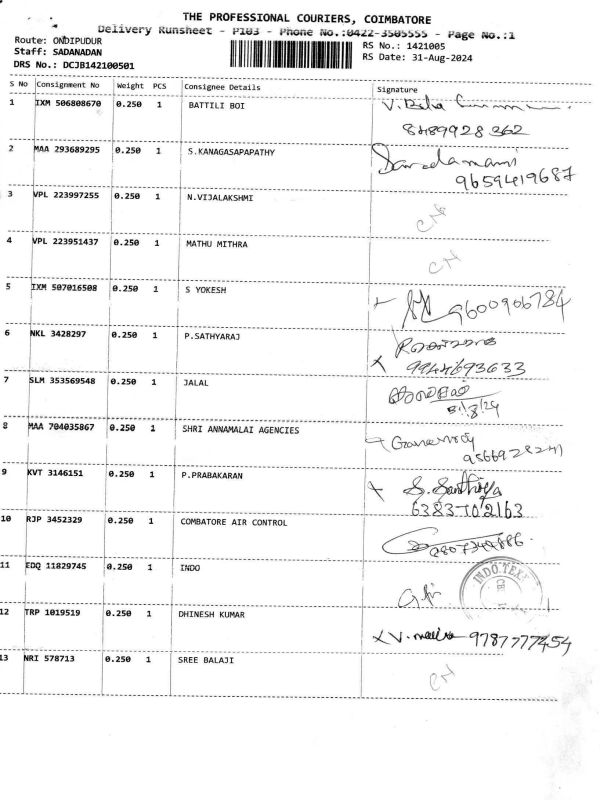 THE PROFESSIONAL COURIERS, COIMBATORE
Delivery Runsheet - P103 - Phone No.:0422-3505555 - Page No.:1
Route: ONDIPUDUR
Staff: SADANADAN
DRS No.: DCJB142100501
RS No.: 1421005
RS Date: 31-Aug-2024
S No Consignment No Weight PCS Consignee Details Signature
1 IXM 506808670 0.250 1 BATTILI BOI
8489928362
2 MAA 293689295 0.250 1 S.KANAGASAPAPATHY
9659419687
3 VPL 223997255 0.250 1 N.VIJALAKSHMI CN
4 VPL 223951437 0.250 1 MATHU MITHRA CN
5 IXM 507016508 0.250 1 S YOKESH
9600906784
6 NKL 3428297 0.250 1 P.SATHYARAJ
9944693633
7 SLM 353569548 0.250 1 JALAL
31/8/24
8 MAA 704035867 0.250 1 SHRI ANNAMALAI AGENCIES
9 KVT 3146151 0.250 1 P.PRABAKARAN S. Santhiya
6383702163
10 RJP 3452329 0.250 1 COMBATORE AIR CONTROL
11 EDQ 11829745 0.250 1 INDO INDO TEX
12 TRP 1019519 0.250 1 DHINESH KUMAR 9787777454
13 NRI 578713 0.250 1 SREE BALAJI CN